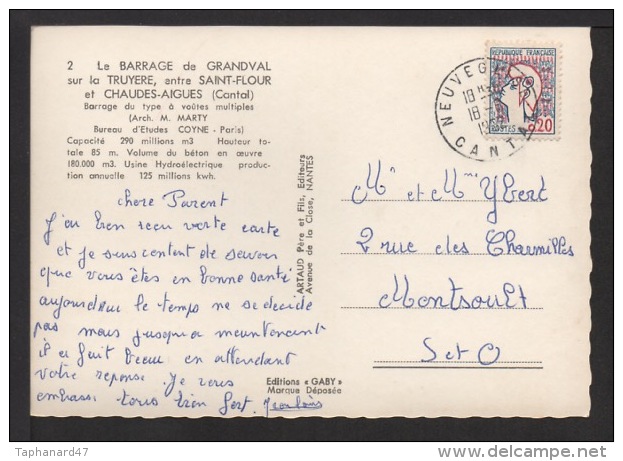 2 Le BARRAGE de GRANDVAL
sur la TRUYERE, entre SAINT-FLOUR
et CHAUDES-AIGUES (Cantal)
Barrage du type à voûtes multiples
(Arch. M. MARTY
Bureau d'Etudes COYNE - Paris)
Capacité 290 millions m3 Hauteur to-
tale 85 m. Volume du béton en œuvre
180.000 m3. Usine Hydroélectrique produc-
tion annuelle 125 millions kwh.
chere Parent
J'ai bien recu votre carte
et je suis content de savoir
que vous êtes en bonne santé
aujourd'hui le temps ne se decide
pas mais jusqu'a maintenant
il a fait beau en attendant
votre reponse. Je vous
embrass tous bien fort. Jean Louis
Editions « GABY »
Marque Déposée
ARTAUD Père et Fils, Editeurs
Avenue de la Close, NANTES
REPUBLIQUE FRANÇAISE
POSTES 0,20
NEUVEG
18 H
18
19
CANTA
Mr et Mme Ybert
2 rue des Charmilles
Montsoult
S et O
Taphanard47
delcampe.net